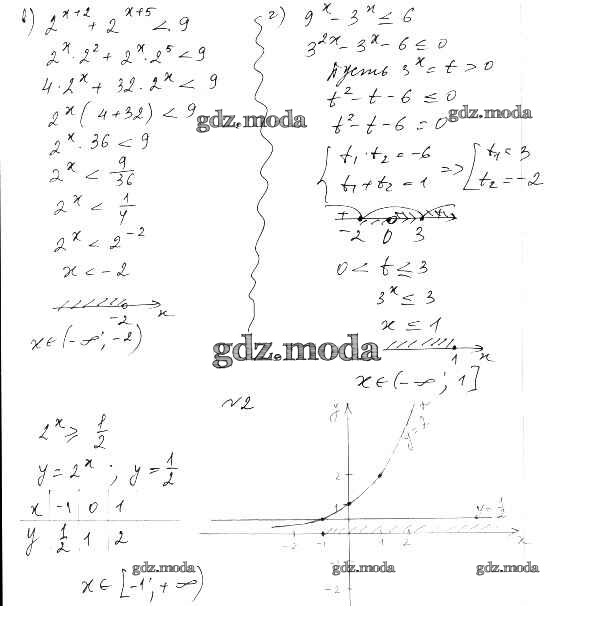 в) 2^{x+2} + 2^{x+5} < 9
2^x · 2^2 + 2^x · 2^5 < 9
4 · 2^x + 32 · 2^x < 9
2^x (4+32) < 9
2^x · 36 < 9
2^x < 9/36
2^x < 1/4
2^x < 2^{-2}
x < -2
-2 x
x ∈ (-∞; -2)
г) 9^x - 3^x ≤ 6
3^{2x} - 3^x - 6 ≤ 0
Пусть 3^x = t > 0
t^2 - t - 6 ≤ 0
t^2 - t - 6 = 0
{ t₁ · t₂ = -6
t₁ + t₂ = 1 => [ t₁ = 3
t₂ = -2
+ - +
-2 0 3
0 < t ≤ 3
3^x ≤ 3
x ≤ 1
1 x
x ∈ (-∞; 1]
gdz.moda
gdz.moda
gdz.moda
№2
2^x ≥ 1/2
y = 2^x ; y = 1/2
x -1 0 1
y 1/2 1 2
x ∈ [-1; +∞)
y
2
1
y = 1/2
-2 -1 1 2 x
-2
gdz.moda
gdz.moda
gdz.moda